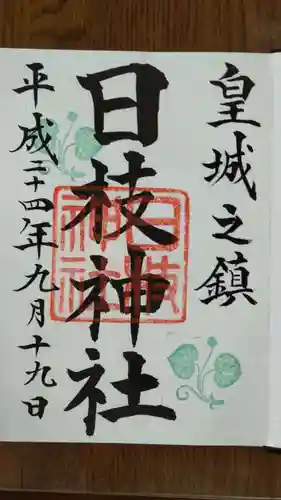 皇城之鎮
日枝神社
日枝神社
平成二十四年九月十九日